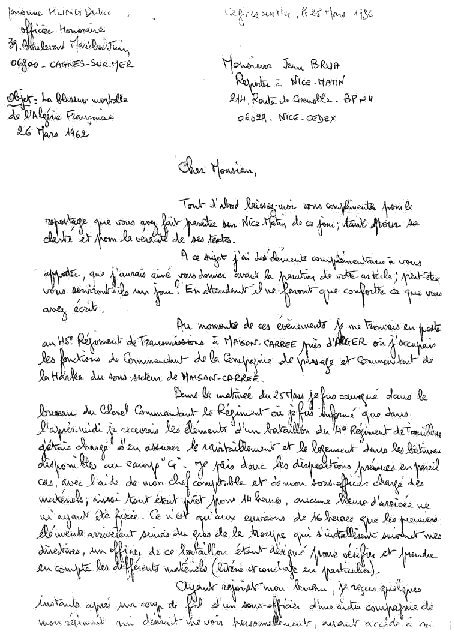 officier Honoraire
39 Boulevard Maréchal Juin
06800 - CAGNES-SUR-MER
Objet: La blessure mortelle
de l'Algérie Française
26 Mars 1962
le 25 Mars 1986
Monsieur Jean BRUA
Reporter à NICE-MATIN
214, Route de Grenoble - BP N4
06029 - NICE-CEDEX
Cher Monsieur,
Tout d'abord laissez-moi vous complimenter pour le
reportage que vous avez fait paraître sur Nice-Matin de ce jour; tant pour sa
clarté et pour la vérité de ses textes.
A ce sujet j'ai des éléments complémentaires à vous
apporter, que j'aurais aimé vous donner avant la parution de votre article; peut-être
vous serviront-ils un jour? En attendant il ne feront que conforter ce que vous
avez écrit.
Au moment de ces évènements je me trouvais en poste
au Régiment de Transmissions à MAISON-CARREE près d'ALGER où j'occupais
les fonctions de Commandant de la Compagnie de passage et Commandant de
la du sous-secteur de MAISON-CARREE.
Dans la matinée du 25 Mars je fus convoqué dans le
bureau du Colonel Commandant le Régiment où je fus informé que dans
l'après-midi je recevrais les éléments d'un bataillon du 4° Régiment de Tirailleurs
j'étais chargé d'en assurer le ravitaillement et le logement dans les bâtiments
disponibles au camp "G". Je pris donc les dispositions prévues en pareil
cas, avec l'aide de mon chef comptable et de mon sous-officier chargé des
matériels; ainsi tout était prêt pour 14 heures, aucune heure d'arrivée ne
m'ayant été fixée. Ce n'est qu'aux environs de 16 heures que les premiers
éléments arrivaient suivis du gros de la troupe qui s'installèrent suivant mes
directives, un officier de ce bataillon étant désigné pour vérifier et prendre
en compte les différents matériels (literie et couchage en particulier).
Ayant rejoint mon bureau, je reçus quelques
instants après un coup de fil d'un sous-officier d'une autre compagnie de
mon régiment qui désirait me voir personnellement, ayant accédé à